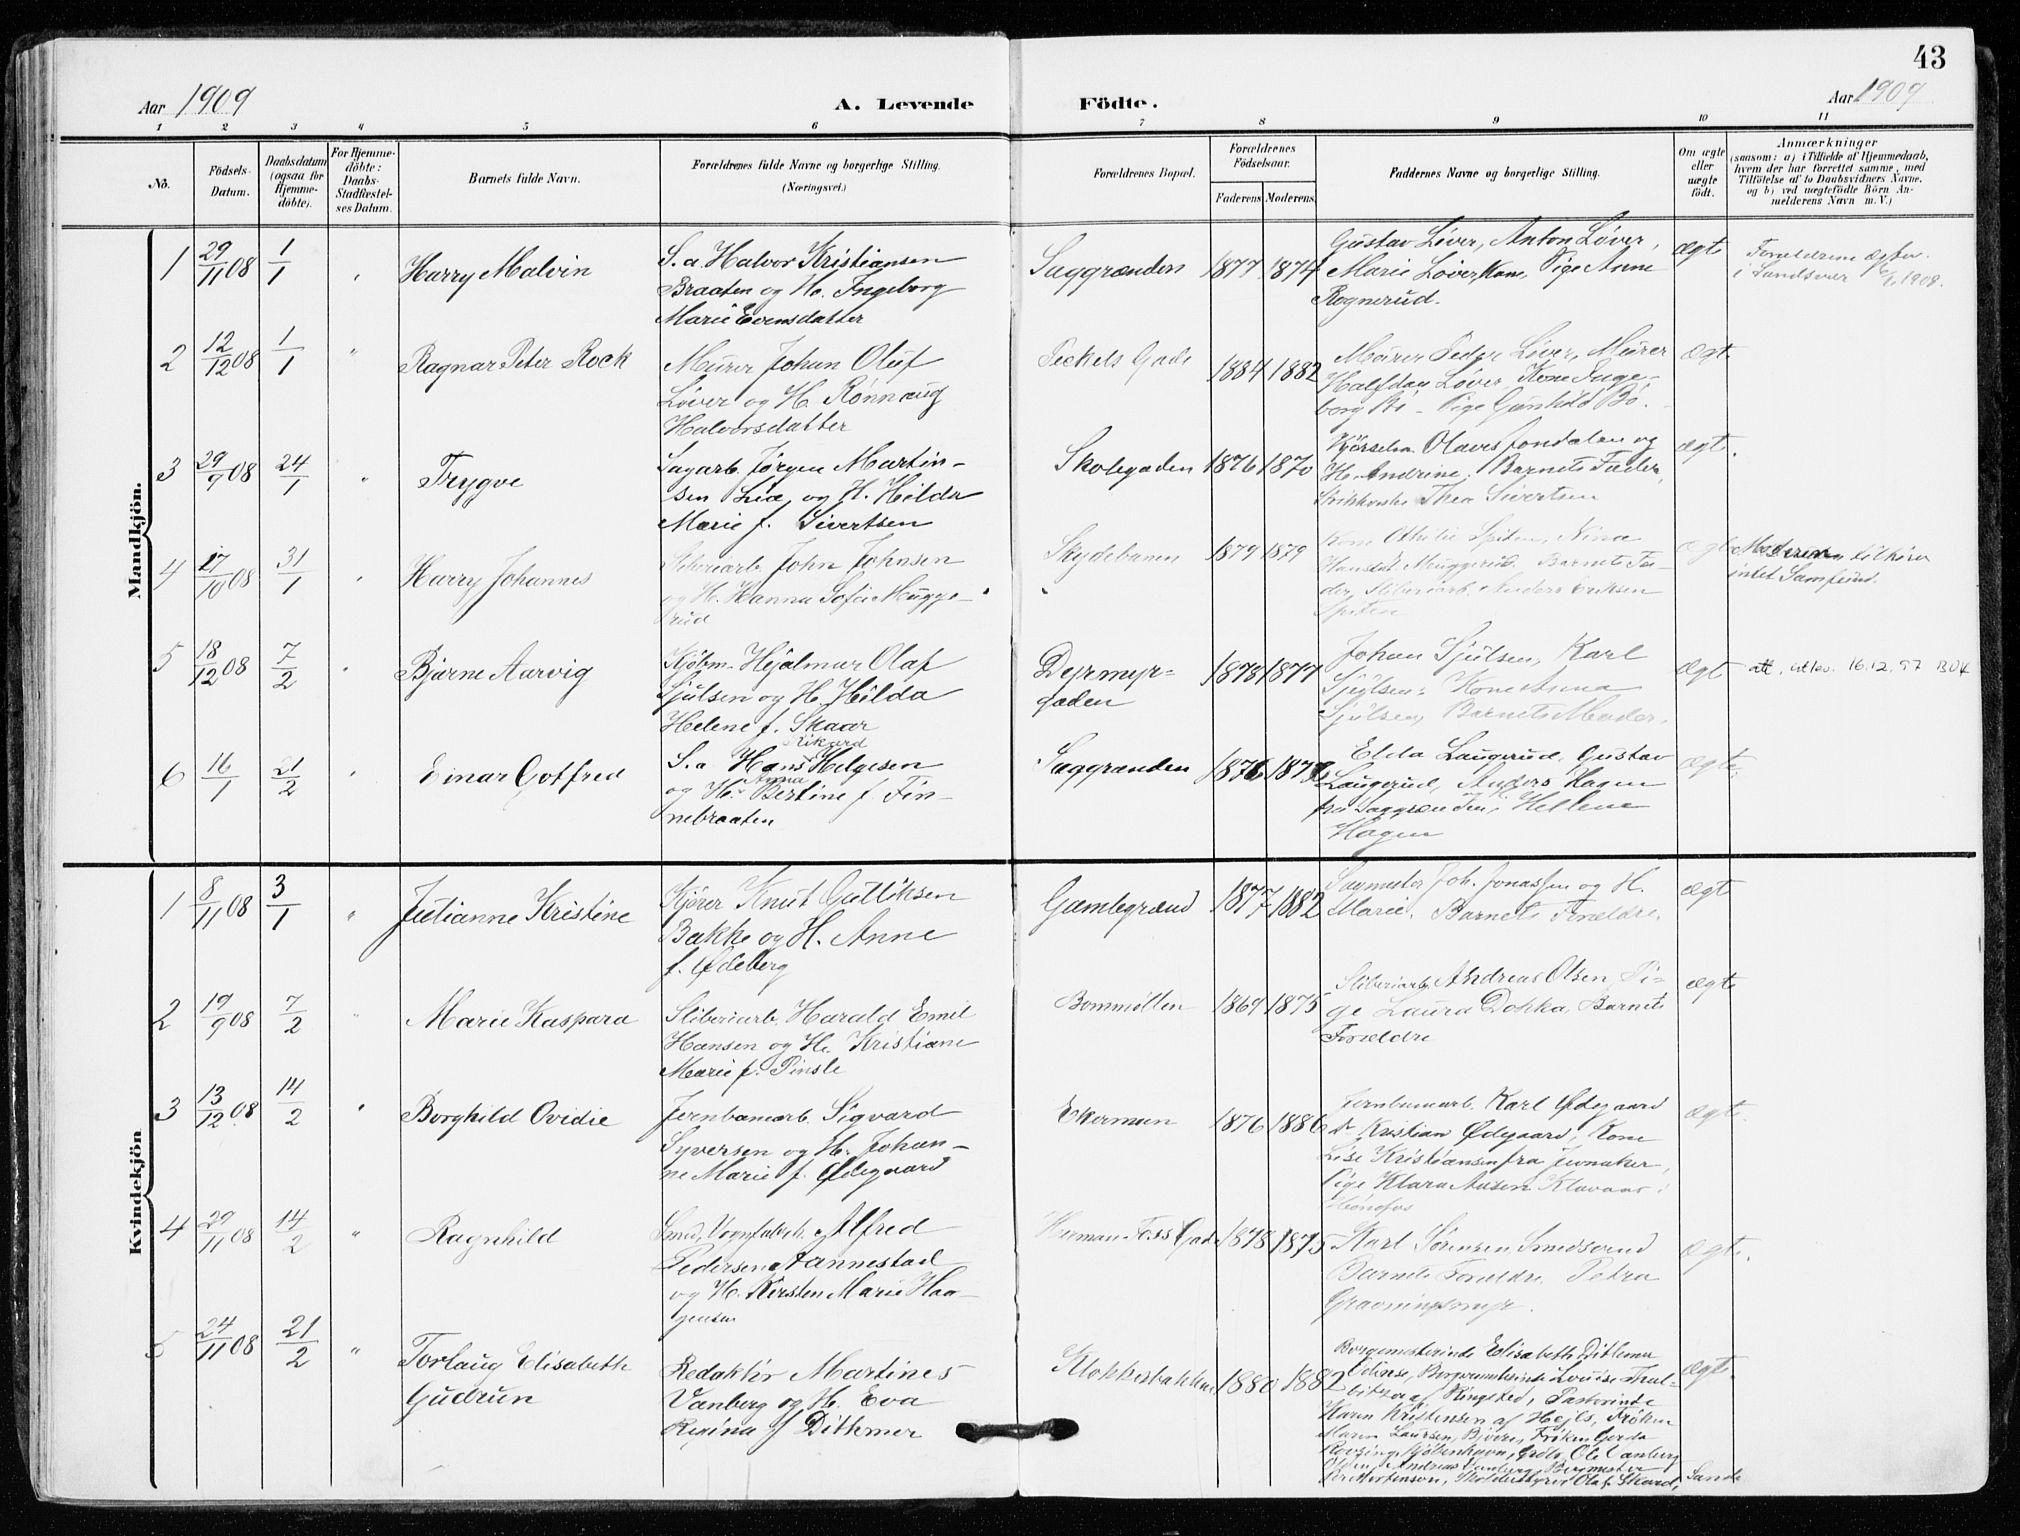 43
Aar 1909
A. Levende
Födte.
Aar 1909
1 2 3 4 5 6 7 8 9 10 11
No.
Födsels-Datum.
Daabsdatum (ogsaa for Hjemme-döbte).
For Hjemme-döbte: Daabs-Stadfæstel-ses Datum.
Barnets fulde Navn.
Forældrenes fulde Navne og borgerlige Stilling. (Næringsvei.)
Forældrenes Bopæl.
Forældrenes Födselsaar.
Faderens Moderens
Faddernes Navne og borgerlige Stilling.
Om ægte eller uægte födt.
Anmærkninger
(saasom: a) i Tilfælde af Hjemmedaab, hvem der har forrettet samme, med Tilföielse af to Daabsvidners Navne, og b) ved uægtefödte Börn Anmelderens Navn m. V.)
Mandkjön.
1 29/11 08 1/1 " Harry Malvin
S. a Halvor Kristiansen
Braaten og H. Ingeborg
Marie Evensdatter
Saggrænden 1877 1874
Gustav Løver, Anton Løver,
Marie Løver, Kone, Pige Anne
Rognerud.
ægte
Forældrene
i Sandsvær 1908.
2 12/12 08 1/1 " Ragnar Peter Rock
Murer Johan Oluf
Løver og H. Rønnaug
Halvorsdatter
Peckels Gade 1884 1882
Murer Peder Løver, Murer
Halfdan Løver, Kone Inge-
borg Bø - Pige Gunhild Bø.
ægt.
3 29/9 08 24/1 " Trygve
Sagarb. Jørgen Martin-
sen Lia, og H. Hilda
Marie f. Sivertsen
Skolegaden 1876 1870
Kjørselsm. Olaves Jondalen og
H. Andrine, Barnets Fader,
Thea Sivertsen
ægte.
4 17/10 08 31/1 " Harry Johannes
Sliberiarb. John Johnsen
og H. Hanna Sofie Mugge-
rud
Skydebanen 1879 1879
Kone Othilie Spiten, Nina
Hansdt. Muggerud. Barnets Fa-
der, Sliberiarb. Anders Eriksen
Spiten
ægte
Moderen tilhører
intet Samfund.
5 18/12 08 7/2 " Bjarne Aarvig
Kjøbm. Hjalmar Olaf
Sjulsen og H. Hilda
Helene f. Skaar
Dyrmyr-
gaden
1878 1877
Johan Sjulsen, Karl
Sjulsen, Kone Anna
Sjulsen, Barnets Moder.
ægte
att. utlev. 16.12.97 BOK
6 16/1 21/2 " Einar Gotfred
Rikard
S. a Hans Helgesen
Anna
og H. Bertine f. Fin-
nebraaten
Saggrænden 1876 1878
Elda Laugerud, Gustav
Laugerud, Anders Hagen
fra Saggrænden, Hellene
Hagen
ægte.
Kvindekjön
1 8/11 08 3/1 " Julianne Kristine
Kjører Knut Gulliksen
Bakke og H. Anne
f. Ødeberg
Gamlegrænd 1877 1882
Sagmester Joh. Jonassen og H.
Marie, Barnets Forældre.
ægt
2 19/9 08 7/2 " Marie Kaspara
Sliberiarb. Harald Emil
Hansen og H. Kristiane
Marie f. Pinsle
Bommøllen 1869 1875
Sliberiarb. Andreas Olsen, Pi-
ge Laura Dokka, Barnets
Forældre
ægte
3 13/12 08 14/2 " Borghild Ovidie
Jernbanearb. Sigvard
Syversen og H. Johan-
ne Marie f. Ødegaard
Ekermoen 1876 1886
Jernbanearb. Karl Ødegaard
do Kristian Ødegaard, Kone
Lise Kristiansen fra Jevnaker,
Pige Klara Aasen
Hønefos
ægte.
4 29/11 08 14/2 " Ragnhild
Smed, Vognfabrk. Alfred
Pedersen Nannestad
og H. Kirsten Marie Haa-
gensen
Herman Foss Gade 1878 1875
Karl Sørensen Smedsrud
Barnets Forældre, Petra
Gravningsmyr.
ægte.
5 24/11 08 21/2 " Torlaug Elisabeth
Gudrun
Redaktør Martines
Vanberg og H. Eva
Regina f. Dithmer
Klokkerbakken 1880 1882
Borgemesterinde Elisabeth Dithmer
Odense, Louise Thal-
bitzer af Ringsted, Pastorinde
Karen Kristensen af Hejls, Frøken
Maren Laursen, Frøken Gerda
Kjøbenhavn, Gdbr. Ole Vanberg
Andreas Vanberg,
Mortenson, Skolebestyrer Olaf Skard, Sande
ægte.